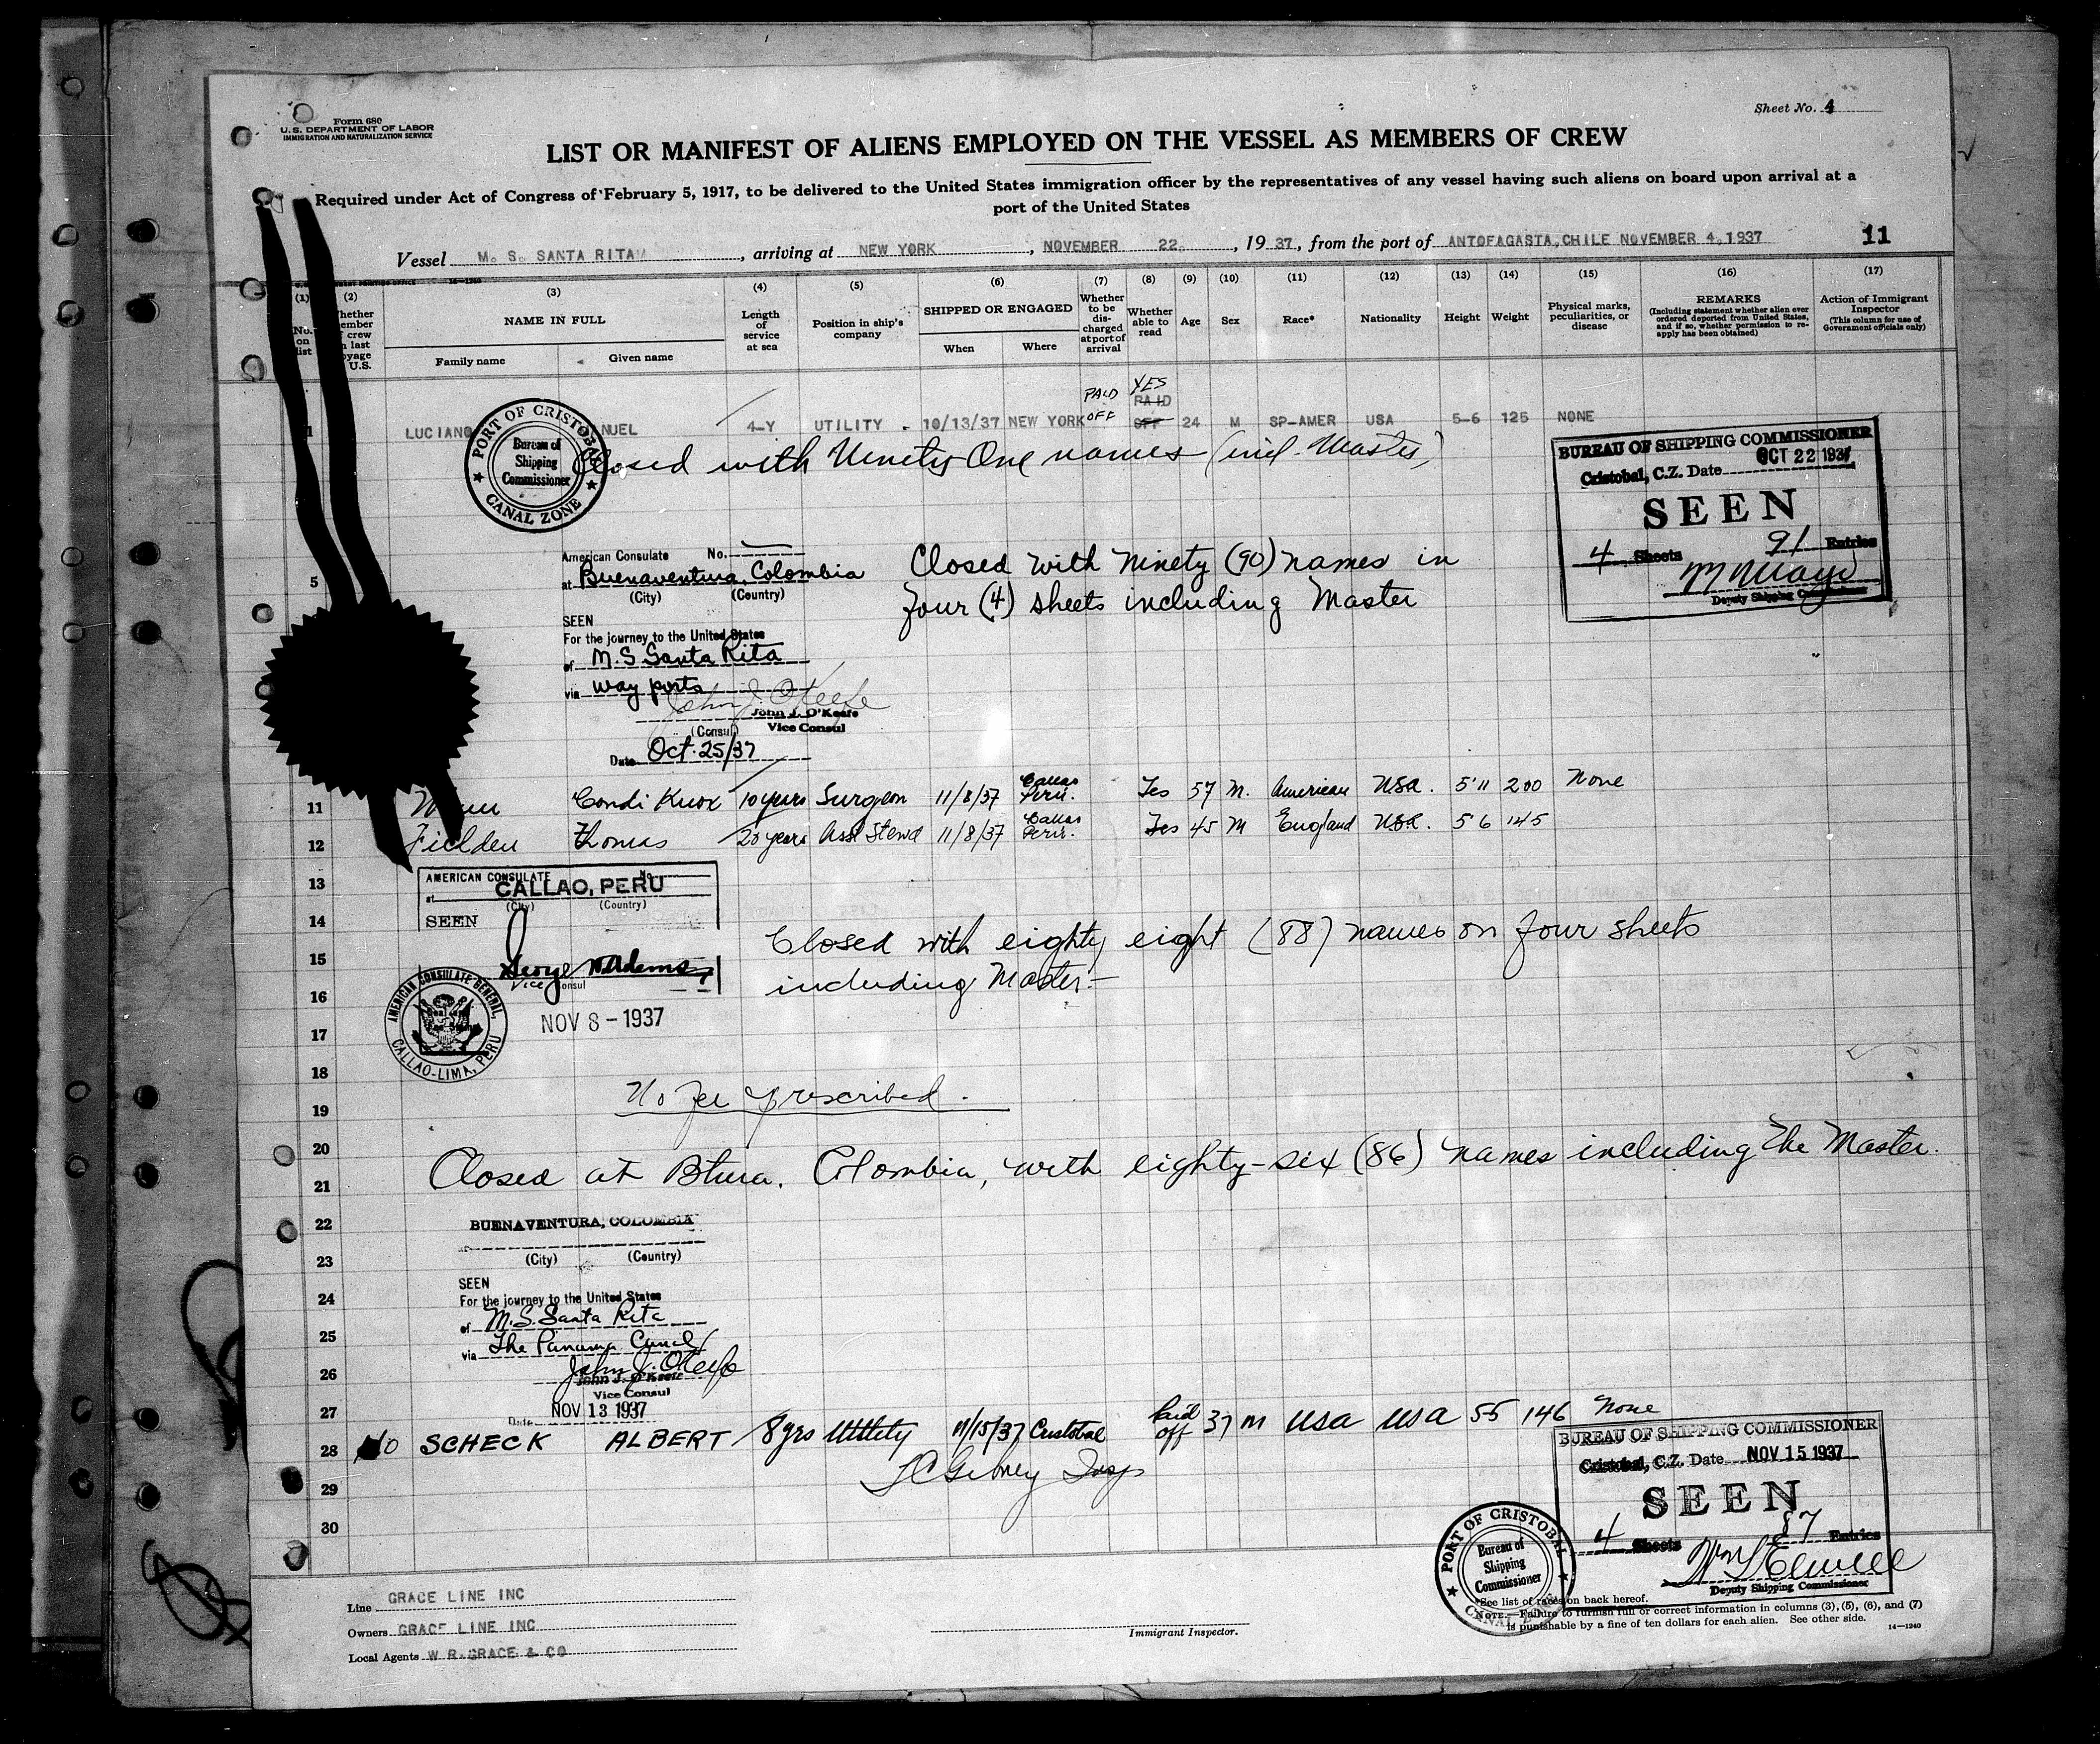 Form 680
U.S. DEPARTMENT OF LABOR
IMMIGRATION AND NATURALIZATION SERVICE
Sheet No. 4
LIST OR MANIFEST OF ALIENS EMPLOYED ON THE VESSEL AS MEMBERS OF CREW
Required under Act of Congress of February 5, 1917, to be delivered to the United States immigration officer by the representatives of any vessel having such aliens on board upon arrival at a
port of the United States
Vessel M. S. SANTA RITA, arriving at NEW YORK, NOVEMBER 22, 1937, from the port of ANTOFAGASTA,CHILE NOVEMBER 4,1937 11
(1) (2) (3) (4) (5) (6) (7) (8) (9) (10) (11) (12) (13) (14) (15) (16) (17)
No. on list
NAME IN FULL
Family name Given name
Length of service at sea
Position in ship's company
SHIPPED OR ENGAGED
When Where
Whether to be discharged at port of arrival
Whether able to read
Age
Sex
Race*
Nationality
Height
Weight
Physical marks, peculiarities, or disease
REMARKS
(Including statement whether alien ever ordered deported from United States, and if so, whether permission to re-apply has been obtained)
Action of Immigrant Inspector
(This column for use of Government officials only)
PAID YES
PAID
1 LUCIANO NUEL 4-Y UTILITY 10/13/37 NEW YORK OFF OFF 24 M SP-AMER USA 5-6 125 NONE
Closed with Ninety One names (incl. Master)
PORT OF CRISTOBAL
Bureau of
Shipping
Commissioner
CANAL ZONE
BUREAU OF SHIPPING COMMISSIONER
Cristobal, C.Z. Date OCT 22 1937
SEEN
4 Sheets 91 Entries
Deputy Shipping Commissioner
American Consulate No.
5
at Buenaventura, Colombia
(City) (Country)
SEEN
For the journey to the United States
of M.S Santa Rita
via way ports
John J. O'Keefe
John J. O'Keefe
(Consul) Vice Consul
Date Oct. 25/37
Closed with Ninety (90) names in
four (4) sheets including Master
11 Condi Knox 10 years Surgeon 11/8/37 Callao Peru. Yes 57 M. American USA. 5'11 200 None
12 Fielden Thomas 20 years Asst Stewd 11/8/37 Callao Peru. Yes 45 M England USA. 5 6 145
13
AMERICAN CONSULATE No.
at CALLAO, PERU
(City) (Country)
SEEN
14
Closed with eighty eight (88) names on four sheets
15
including Master-
George Adams
Vice Consul
16
AMERICAN CONSULATE GENERAL,
CALLAO-LIMA, PERU
NOV 8 - 1937
17
18
No fee prescribed.
19
20
Closed at Btura. Colombia, with eighty-six (86) names including the Master.
21
22
BUENAVENTURA, COLOMBIA
(City) (Country)
23
SEEN
24
For the journey to the United States
of M.S. Santa Rita
25
via The Panama Canal
26
John J. O'Keefe
John J. O'Keefe
Vice Consul
27
Date NOV 13 1937
28 SCHECK ALBERT 8 yrs Utility 11/15/37 Cristobal Paid off 37 M USA USA 55 146 None
Insp
29
30
BUREAU OF SHIPPING COMMISSIONER
Cristobal, C.Z. Date NOV 15 1937
SEEN
4 Sheets 87 Entries
Deputy Shipping Commissioner
PORT OF CRISTOBAL
Bureau of
Shipping
Commissioner
Line GRACE LINE INC
Owners GRACE LINE INC
Local Agents W R GRACE & CO
Immigrant Inspector.
*See list of races on back hereof.
NOTE.—Failure to furnish full or correct information in columns (3), (5), (6), and (7)
is punishable by a fine of ten dollars for each alien. See other side.
14—1240